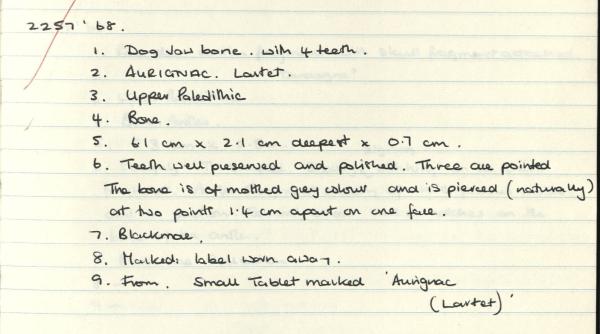 2257 '68.
1. Dog Jaw bone. with 4 teeth.
2. AURIGNAC. Lartet.
3. Upper Paleolithic
4. Bone.
5. 6.1 cm x 2.1 cm deepest x 0.7 cm.
6. Teeth well preserved and polished. Three are pointed
The bone is of mottled grey colour and is pierced (naturally)
at two points 1.4 cm apart on one face.
7. Blackmore.
8. Marked: label worn away.
9. From. Small Tablet marked 'Aurignac
(Lartet)'